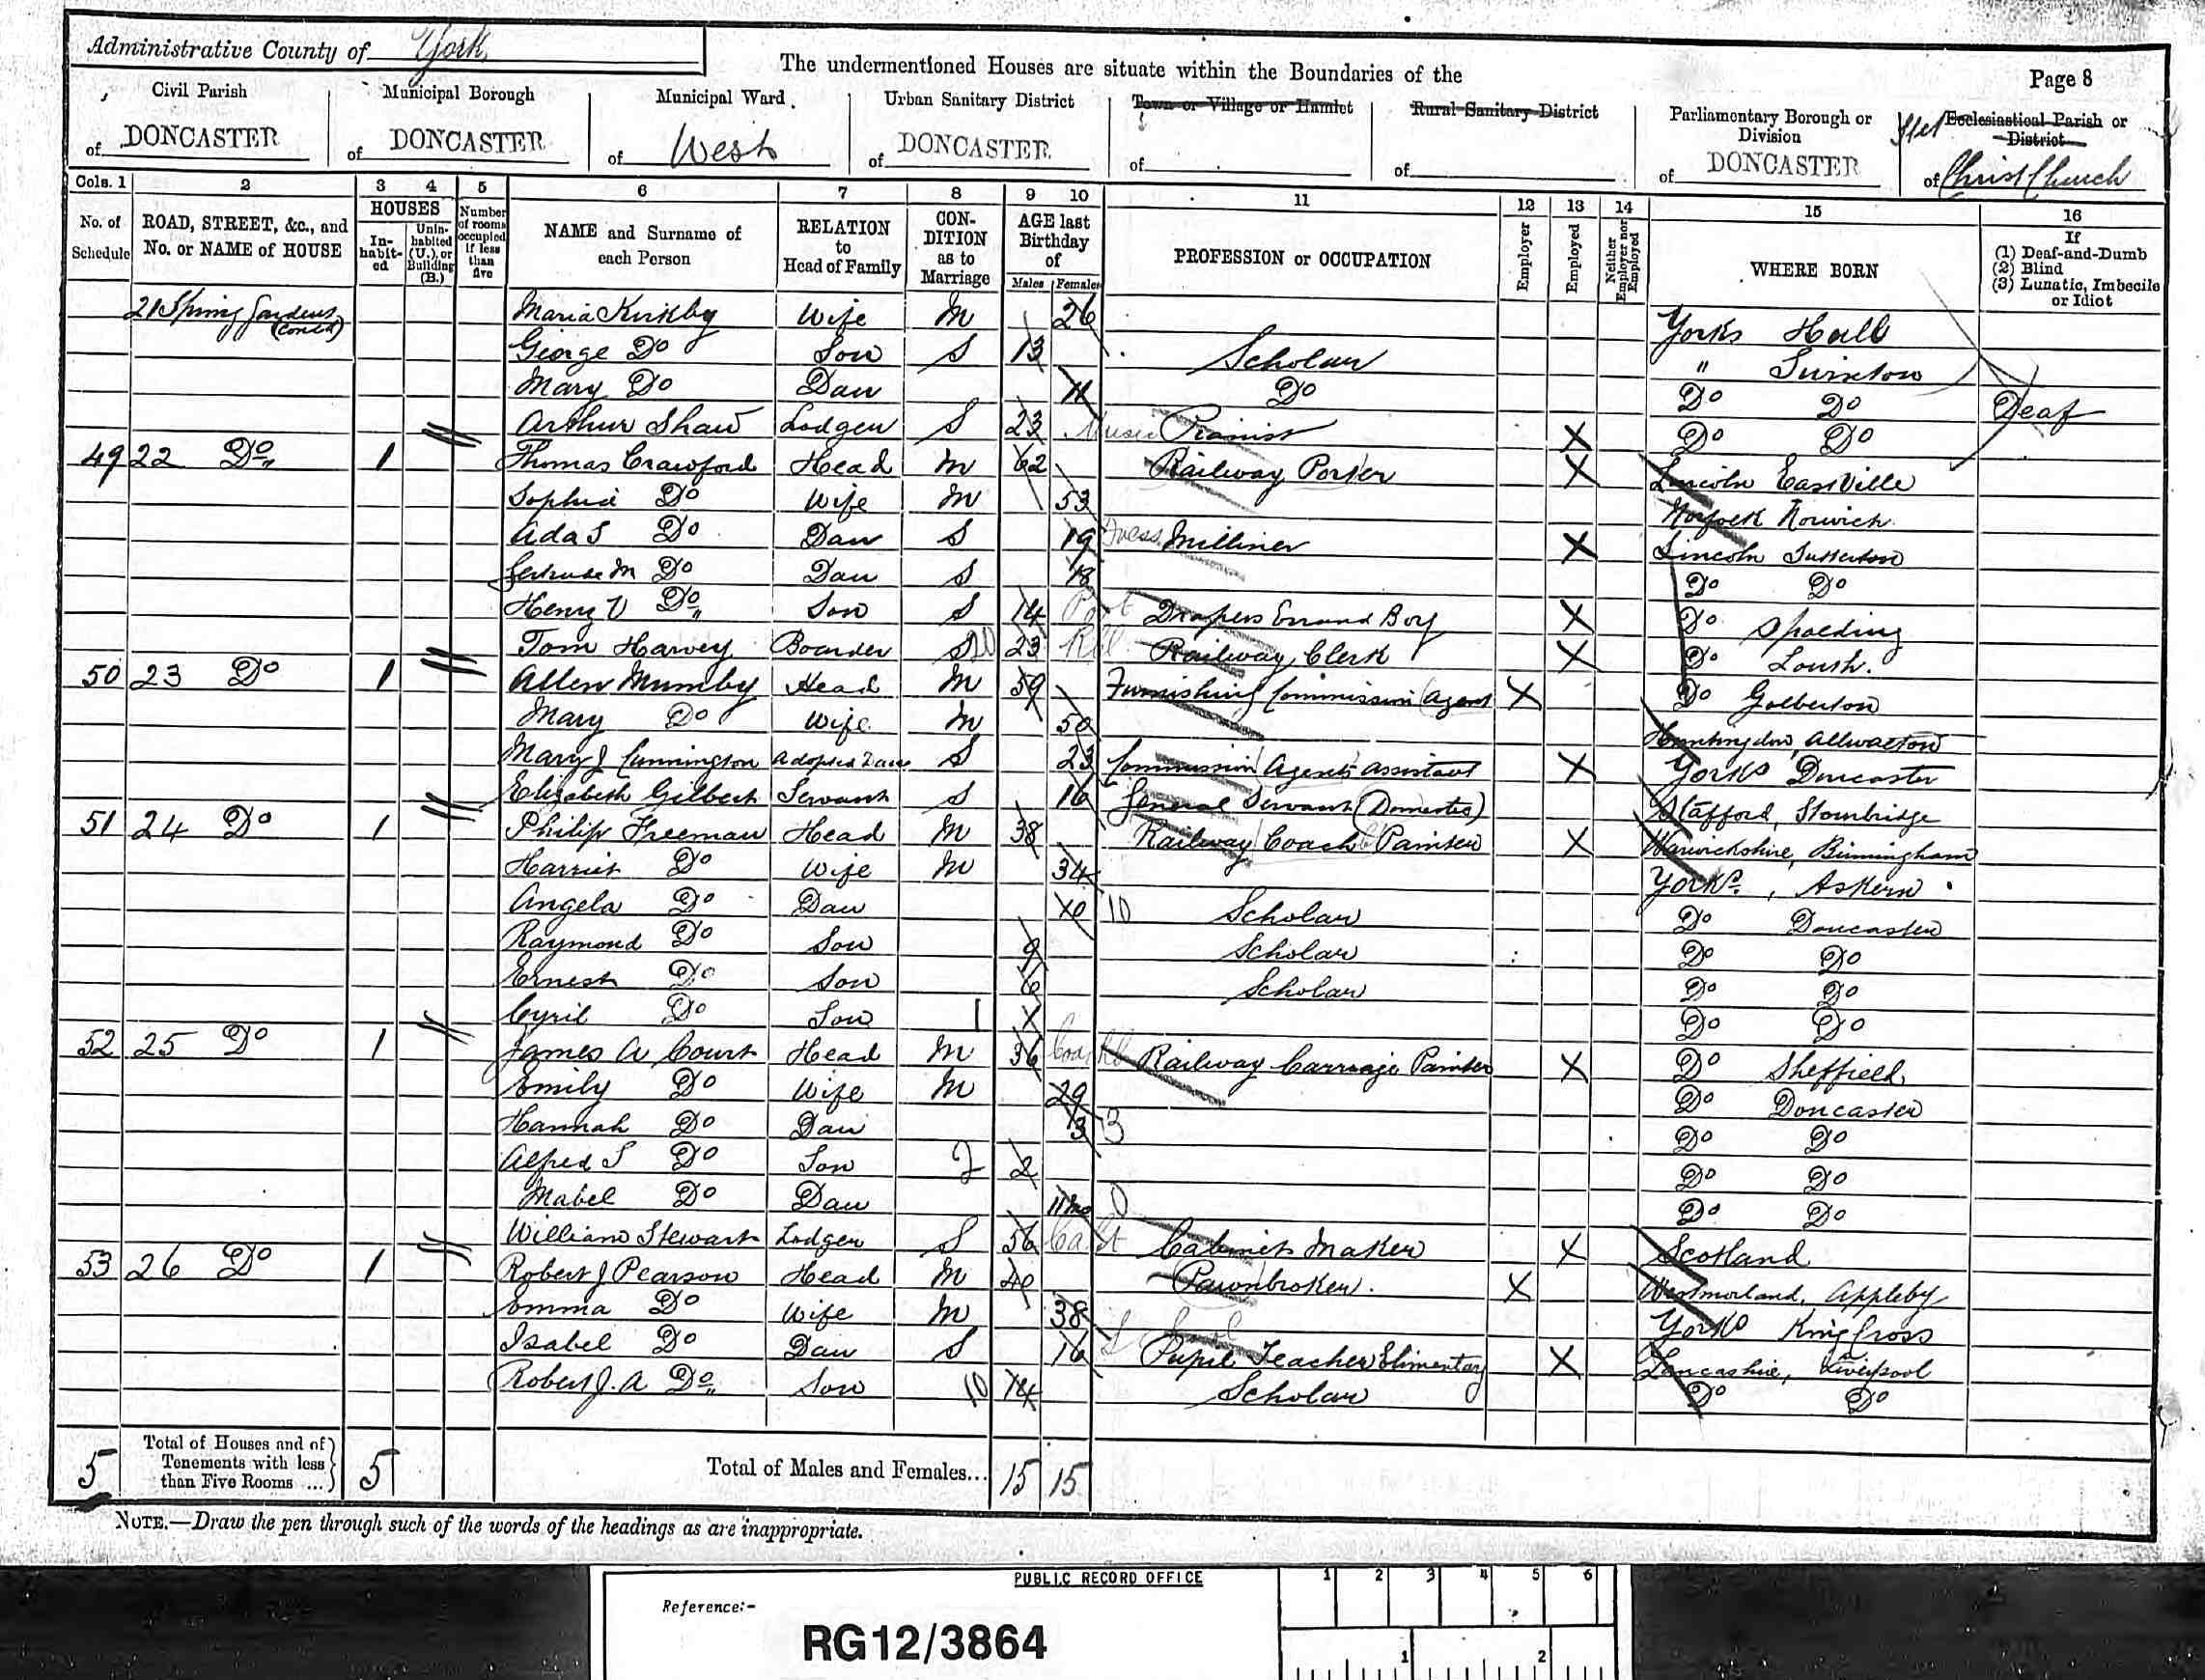 Administrative County of York
The undermentioned Houses are situate within the Boundaries of the
Page 8
Civil Parish of DONCASTER
Municipal Borough of DONCASTER
Municipal Ward of West
Urban Sanitary District of DONCASTER
Town or Village or Hamlet of
Rural Sanitary District of
Parliamentary Borough or Division of DONCASTER
Ecclesiastical Parish or District of Christ Church
Cols. 1 2 3 4 5 6 7 8 9 10 11 12 13 14 15 16
No. of Schedule
ROAD, STREET, &c., and No. or NAME of HOUSE
HOUSES
In-habit-ed
Unin-habited (U.), or Building (B.)
Number of rooms occupied if less than five
NAME and Surname of each Person
RELATION to Head of Family
CON-DITION as to Marriage
AGE last Birthday of
Males Females
PROFESSION or OCCUPATION
Employer
Employed
Neither Employer nor Employed
WHERE BORN
If (1) Deaf-and-Dumb (2) Blind (3) Lunatic, Imbecile or Idiot
21 Spring Gardens (Contd) Maria Kirkby Wife M 26 Yorks Hull
George Do Son S 13 Scholar " Swinton
Mary Do Daur 11 Do Do Do Deaf
Arthur Shaw Lodger S 23 Music Pianist X Do Do
49 22 Do 1 Thomas Crawford Head M 62 Railway Porter X Lincoln East Ville
Sophia Do Wife M 53 Norfolk Norwich
Ada S Do Daur S 19 Dress Milliner X Lincoln Sutterton
Gertrude M Do Daur S 18 Do Do
Henry V Do Son S 14 Drapers Errand Boy X Do Spalding
Tom Harvey Boarder S 23 Railway Clerk X Do Louth.
50 23 Do 1 Allen Mumby Head M 59 Furnishing Commission Agent X Do
Mary Do Wife M 50 Huntingdon, Allwalton
Mary J Cunnington Adopted Daur S 23 Commission Agents assistant X Yorks Doncaster
Elizabeth Gilbert Servant S 16 General Servant (Domestic) Stafford, Stourbridge
51 24 Do 1 Philip Freeman Head M 38 Railway Coach Painter X Warwickshire, Birmingham
Harriet Do Wife M 34 Yorks, Askern
Angela Do Daur 10 10 Scholar Do Doncaster
Raymond Do Son 9 Scholar Do Do
Ernest Do Son 6 Scholar Do Do
Cyril Do Son 1 Do Do
52 25 Do 1 James A Court Head M 36 Railway Carriage Painter X Do Sheffield
Emily Do Wife M 29 Do Doncaster
Hannah Do Daur 3 3 Do Do
Alfred S Do Son 2 2 Do Do
Mabel Do Daur 11mo 0 Do Do
William Stewart Lodger S 56 Cabinet Maker X Scotland
53 26 Do 1 Robert J Pearson Head M 40 Pawnbroker. X Westmorland, Appleby
Emma Do Wife M 38 Yorks King Cross
Isabel Do Daur S 16 Pupil Teacher Elimentary X Lancashire, Liverpool
Robert J. A Do Son 10 14 Scholar Do Do
5 Total of Houses and of Tenements with less than Five Rooms ... 5 Total of Males and Females... 15 15
NOTE.—Draw the pen through such of the words of the headings as are inappropriate.
PUBLIC RECORD OFFICE
1 2 3 4 5 6
Reference:-
RG12/3864
1 2